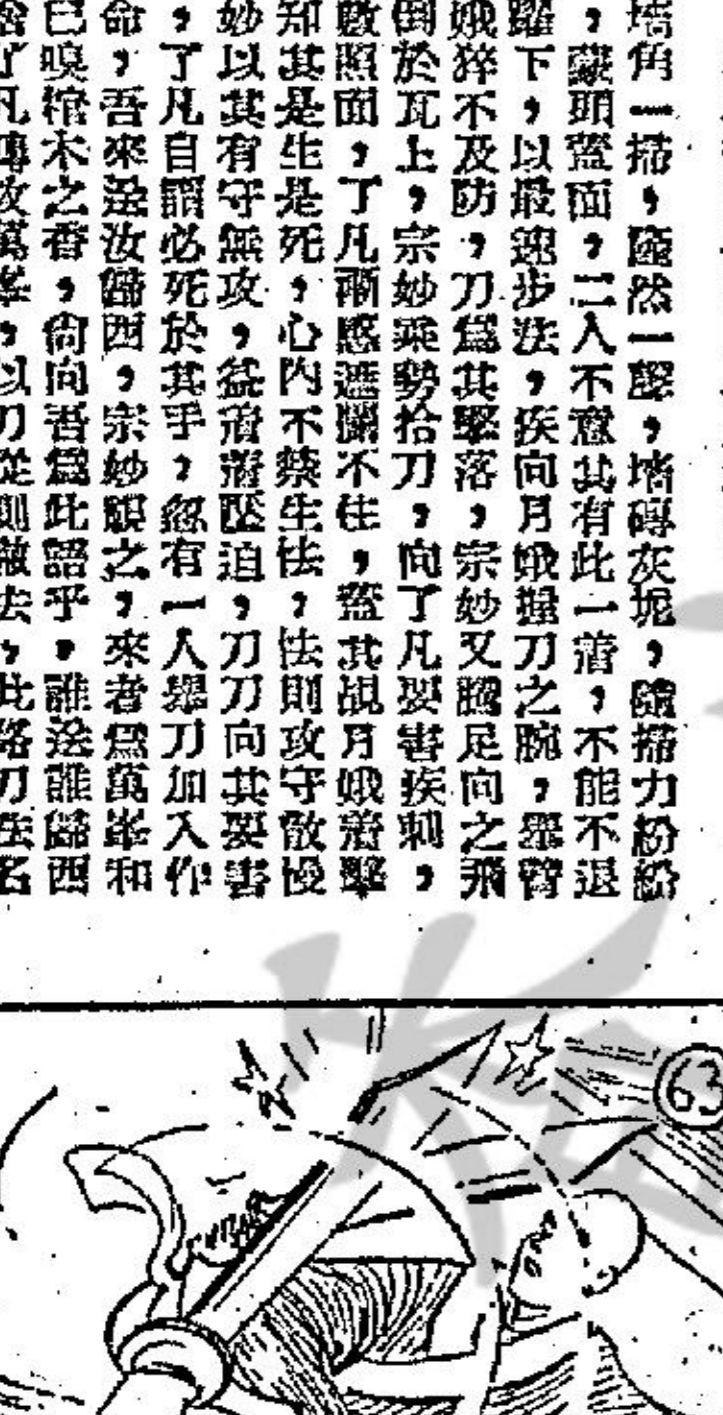 墻角一掃，隆然一聲，墻磚灰坭，隨掃力紛紛
，蒙頭蓋面，二人不意其有此一着，不能不退
躍下，以最速步法，疾向月娥握刀之腕，舉臂
娥猝不及防，刀爲其擊落，宗妙又騰足向之飛
倒於瓦上，宗妙乘勢拾刀，向了凡要害疾刺，
數照面，了凡兩感遮攔不住，蓋其覘月娥着擊
知其是生是死，心內不禁生怯，怯則攻守散慢
妙以其有守無攻，益着着壓迫，刀刀向其要害
，了凡自謂必死於其手，忽有一人舉刀加入作
命，吾來送汝歸西，宗妙覷之，來者爲萬峯和
已嗅棺木之香，尙向吾爲此語乎，誰送誰歸西
了凡專攻萬峯，以刀從側敵去，此路刀法名
63